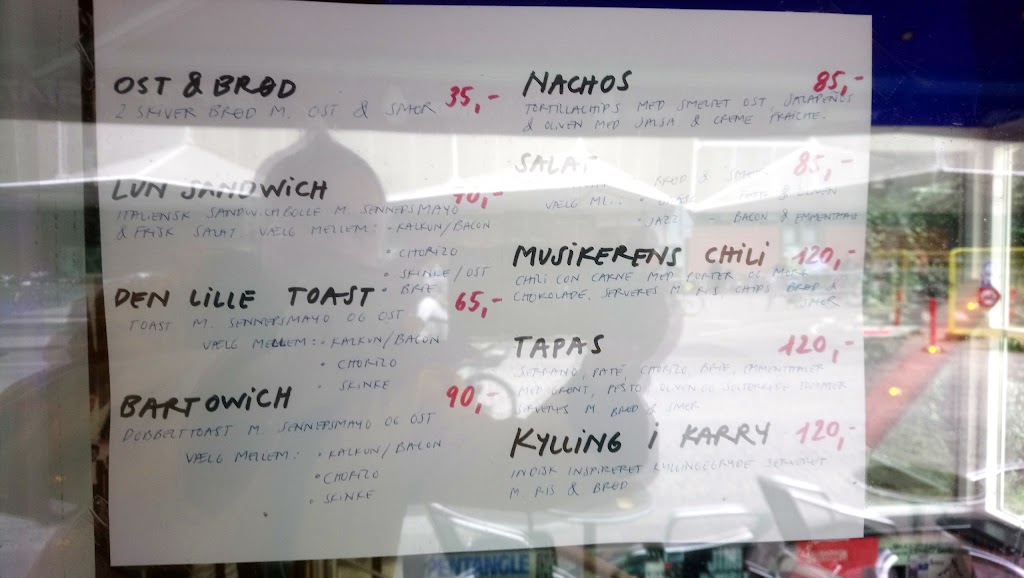 OST & BRØD 35,-
2 SKIVER BRØD M. OST & SMØR
LUN SANDWICH 70,-
ITALIENSK SANDWICHBOLLE M. SENNEPSMAYO
& FRISK SALAT VÆLG MELLEM: • KALKUN/BACON
• CHORIZO
• SKINKE/OST
• BRIE
DEN LILLE TOAST 65,-
TOAST M. SENNEPSMAYO OG OST
VÆLG MELLEM: • KALKUN/BACON
• CHORIZO
• SKINKE
BARTOWICH 90,-
DOBBELTTOAST M. SENNEPSMAYO OG OST
VÆLG MELLEM: • KALKUN/BACON
• CHORIZO
• SKINKE
NACHOS 85,-
TORTILLACHIPS MED SMELTET OST, JALAPEÑOS
& OLIVEN MED SALSA & CREME FRAICHE.
SALAT 85,-
BRØD & SMØR
VÆLG ML.: & OLIVEN
• JAZZ - BACON & EMMENTHAL
MUSIKERENS CHILI 120,-
CHILI CON CARNE MED PORTER OG MØRK
CHOKOLADE, SERVERES M RIS CHIPS BRØD &
SMØR
TAPAS 120,-
SERRANO, PATÉ, CHORIZO, BRIE, EMMENTHALER
MED GRØNT, PESTO, OLIVEN OG SOLTØRREDE TOMATER
SERVERES M. BRØD & SMØR
KYLLING I KARRY 120,-
INDISK INSPIRERET KYLLINGEGRYDE SERVERET
M RIS & BRØD
PENTANGLE